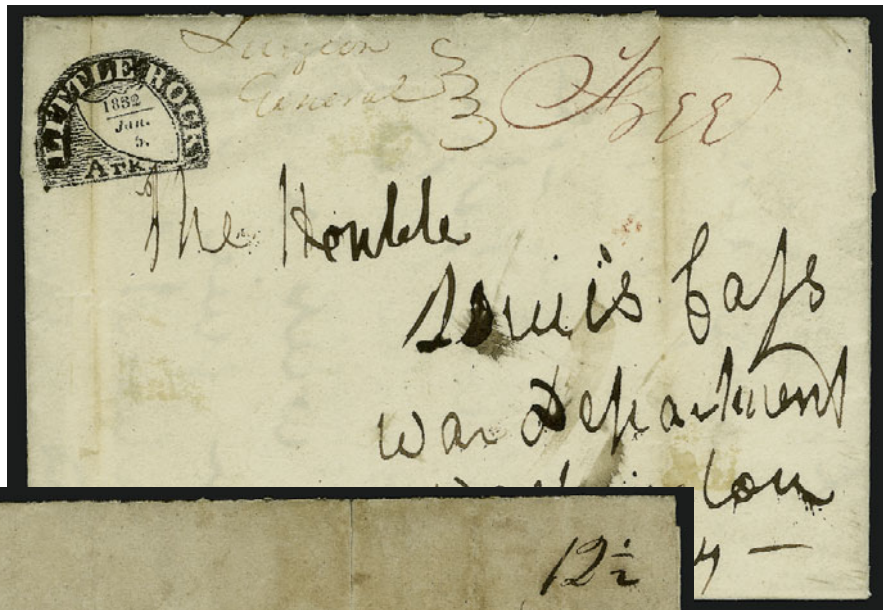 LITTLE ROCK
1832
Jan.
5.
Ark.
Surgeon
General
Free
The Honble
Louis Cass
War Department
12½